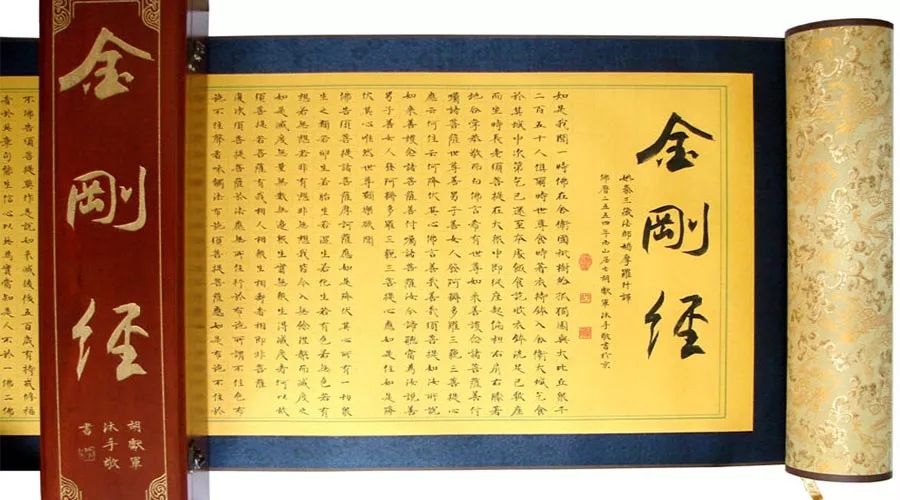 金剛經
姚秦三藏法師鳩摩羅什譯
佛曆二五五四年西山居士胡獻軍沐手敬書於京
如是我聞一時佛在舍衛國祇樹給孤獨園與大比丘眾千
二百五十人俱爾時世尊食時著衣持鉢入舍衛大城乞食
於其城中次第乞已還至本處飯食訖收衣鉢洗足已敷座
而坐時長老須菩提在大眾中即從座起偏袒右肩右膝著
地合掌恭敬而白佛言希有世尊如來善護念諸菩薩善付
囑諸菩薩世尊善男子善女人發阿耨多羅三藐三菩提心
應云何住云何降伏其心佛言善哉善哉須菩提如汝所說
如來善護念諸菩薩善付囑諸菩薩汝今諦聽當為汝說善
男子善女人發阿耨多羅三藐三菩提心應如是住如是降
伏其心唯然世尊願樂欲聞
佛告須菩提諸菩薩摩訶薩應如是降伏其心所有一切眾
生之類若卵生若胎生若濕生若化生若有色若無色若有
想若無想若非有想非無想我皆令入無餘涅槃而滅度之
如是滅度無量無數無邊眾生實無眾生得滅度者何以故
須菩提若菩薩有我相人相眾生相壽者相即非菩薩
復次須菩提菩薩於法應無所住行於布施所謂不住色布
施不住聲香味觸法布施須菩提菩薩應如是布施不住於
金剛經
胡獻軍
沐手敬
書
不佛告須菩提莫作是說如來滅後後五百歲有持戒修福
者於此章句能生信心以此為實當知是人不於一佛二佛